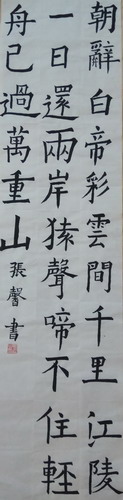 朝辭白帝彩雲間千里江陵
一日還兩岸猿聲啼不住輕
舟已過萬重山
張馨書